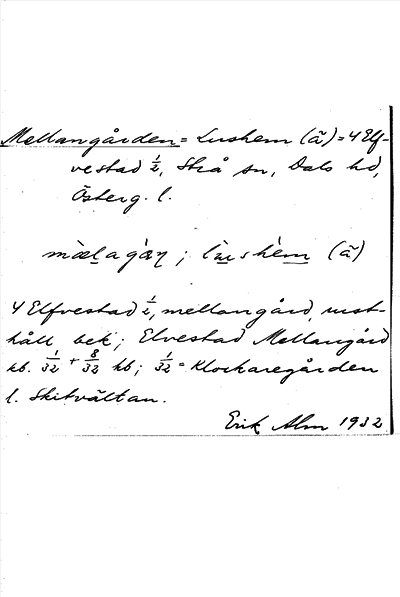 Mellangården = Lushem (ã) = 4 Elf-
vestad ½, Strå sn, Dals hd,
Österg. l.
mæ̀lagäṇ; lùshèm (ã)
4 Elfvestad ½, mellangård, rust-
håll, bek; Elvestad Mellangård
kb. 1/32 + 8/32 hb; 1/32 = Klockaregården
l. Skitvältan.
Erik Alm 1932